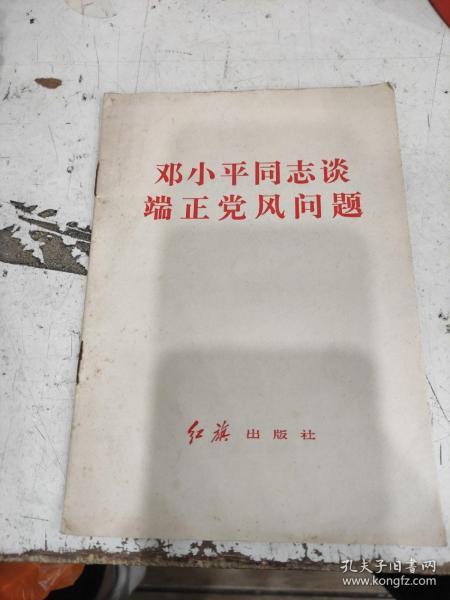 邓小平同志谈
端正党风问题
红旗 出版社
孔夫子旧书网
www.kongfz.com